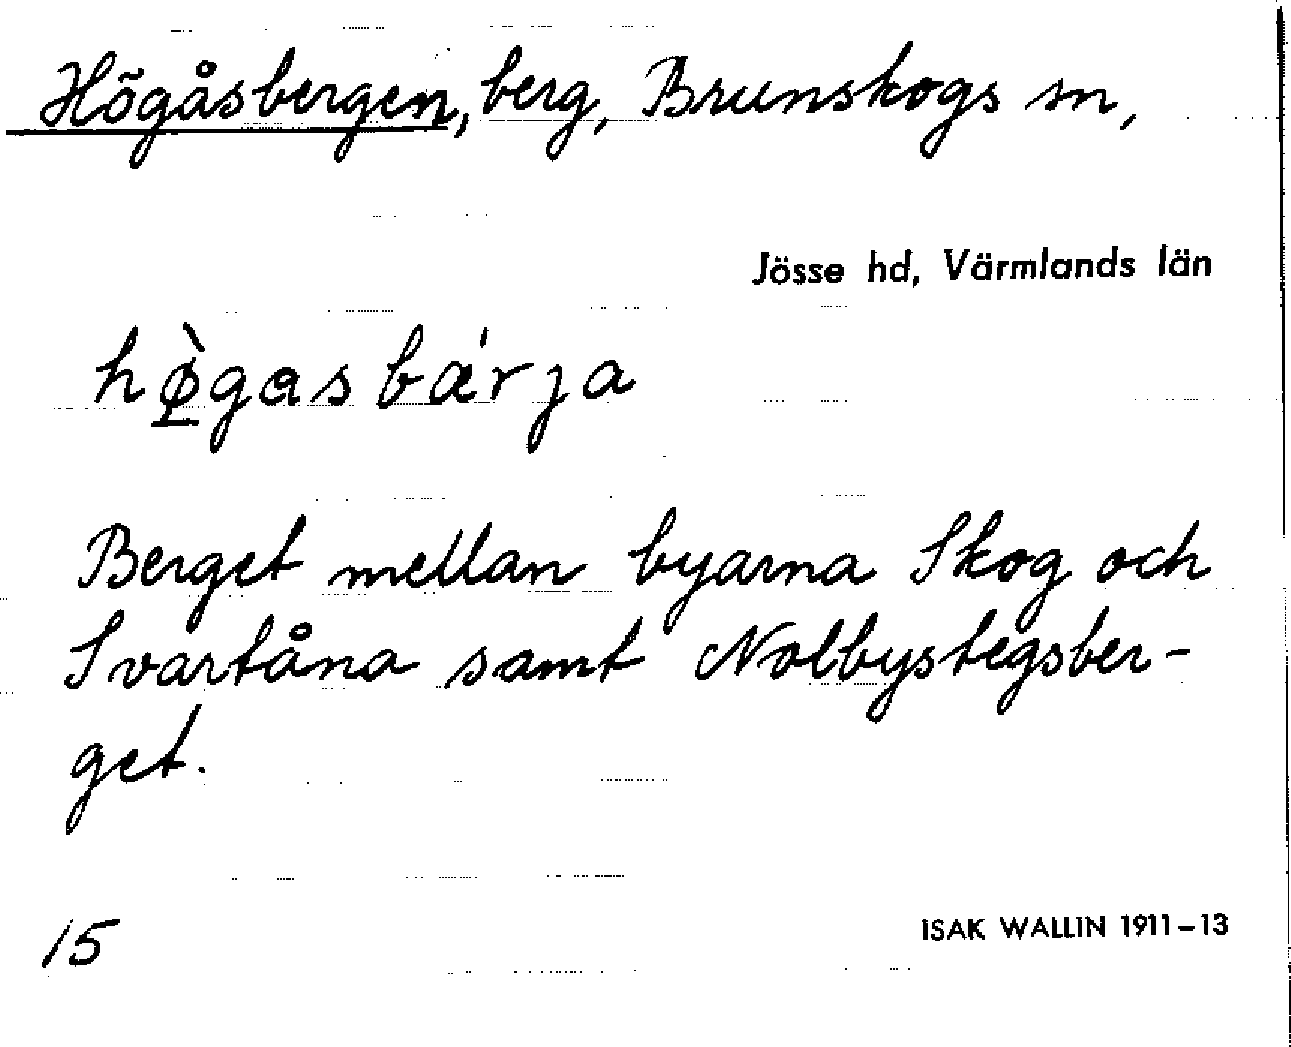 Högåsbergen, berg, Brunskogs sn,
Jösse hd, Värmlands län
hø̠̀gasbæ'rja
Berget mellan byarna Skog och
Svartåna samt Nolbystegsber-
get.
15
ISAK WALLIN 1911-13